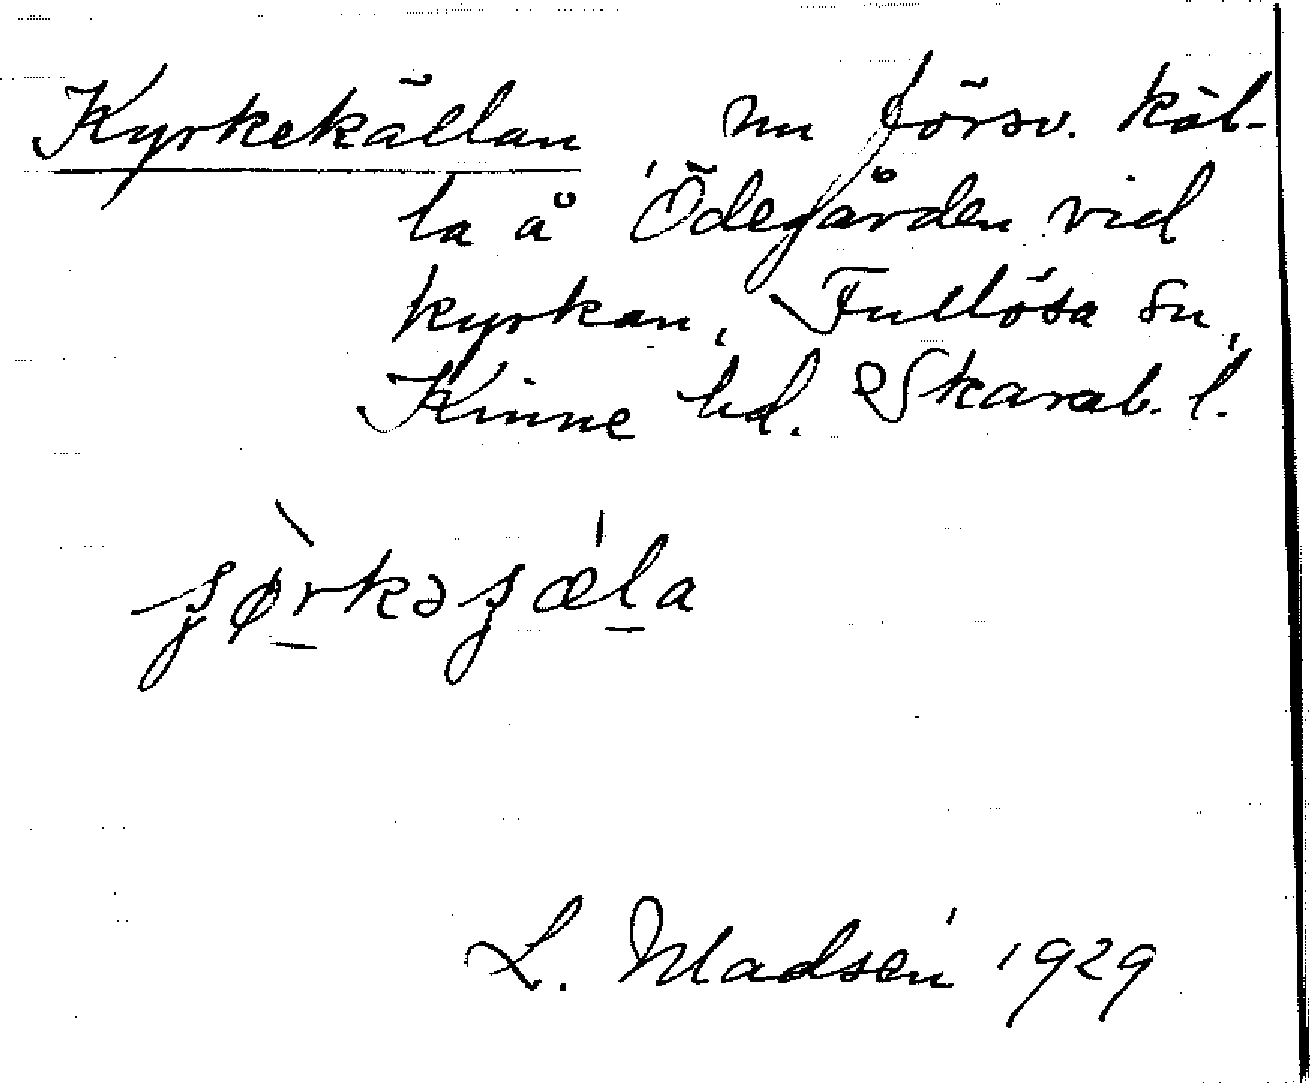 Kyrkekällan nu försv. käl-
la å Ödegården vid
kyrkan, Fullösa sn,
Kinne hd. Skarab. l.
L. Madsén 1929